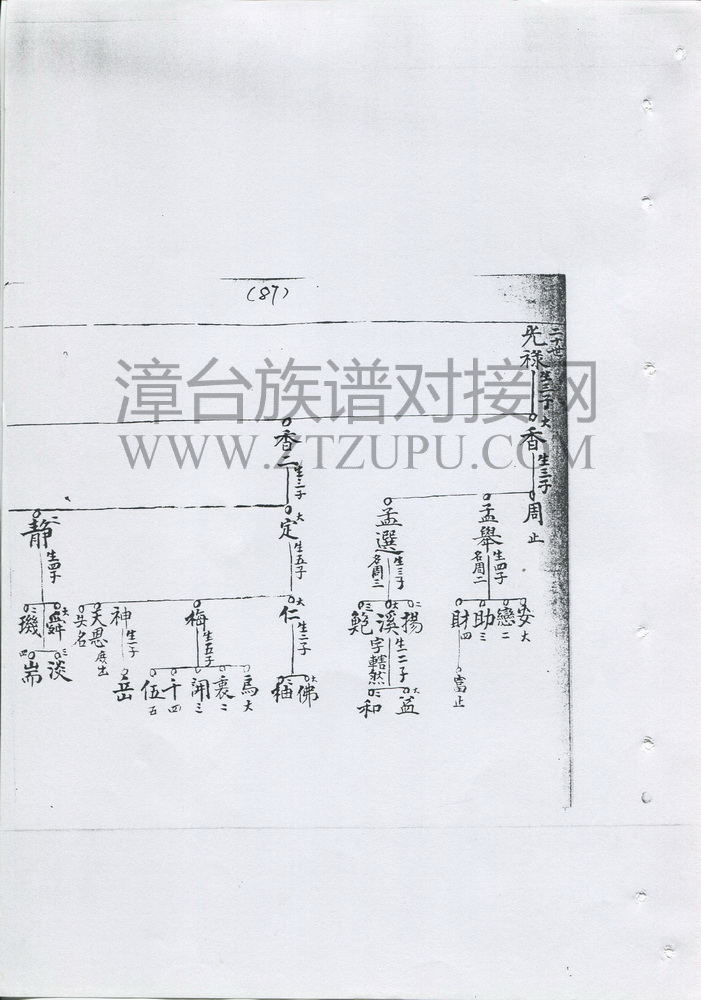 (87)
漳台族谱对接网
WWW.ZTZUPU.COM
二十世
光祿 生三子
大 香 生三子
香二 生二子
周 止
孟舉 生四子 名周二
孟選 生三子 名周三
大 定 生五子
二 靜 生四子
安 大
戀 二
助 三
財 四
富 止
二 揚
大 溪 生二子 字轄然
三 範
大 益
二 和
大 仁 生二子
梅 生五子
神 生一子
天恩 展出
失名
大 佛
二 福
馬 大
裏 二
開 三
千 四
伍 五
岳
大 舜
二 璣
三 淡
四 耑